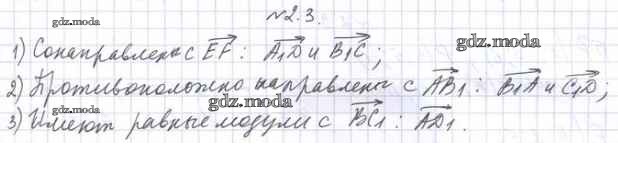 №2.3.
gdz.moda
1) Сонаправлены с EF : A₁D и B₁C ; gdz.moda
2) Противоположно направлены с AB₁ : B₁A и C₁D ;
gdz.moda gdz.moda
3) Имеют равные модули с BC₁ : AD₁ .
gdz.moda